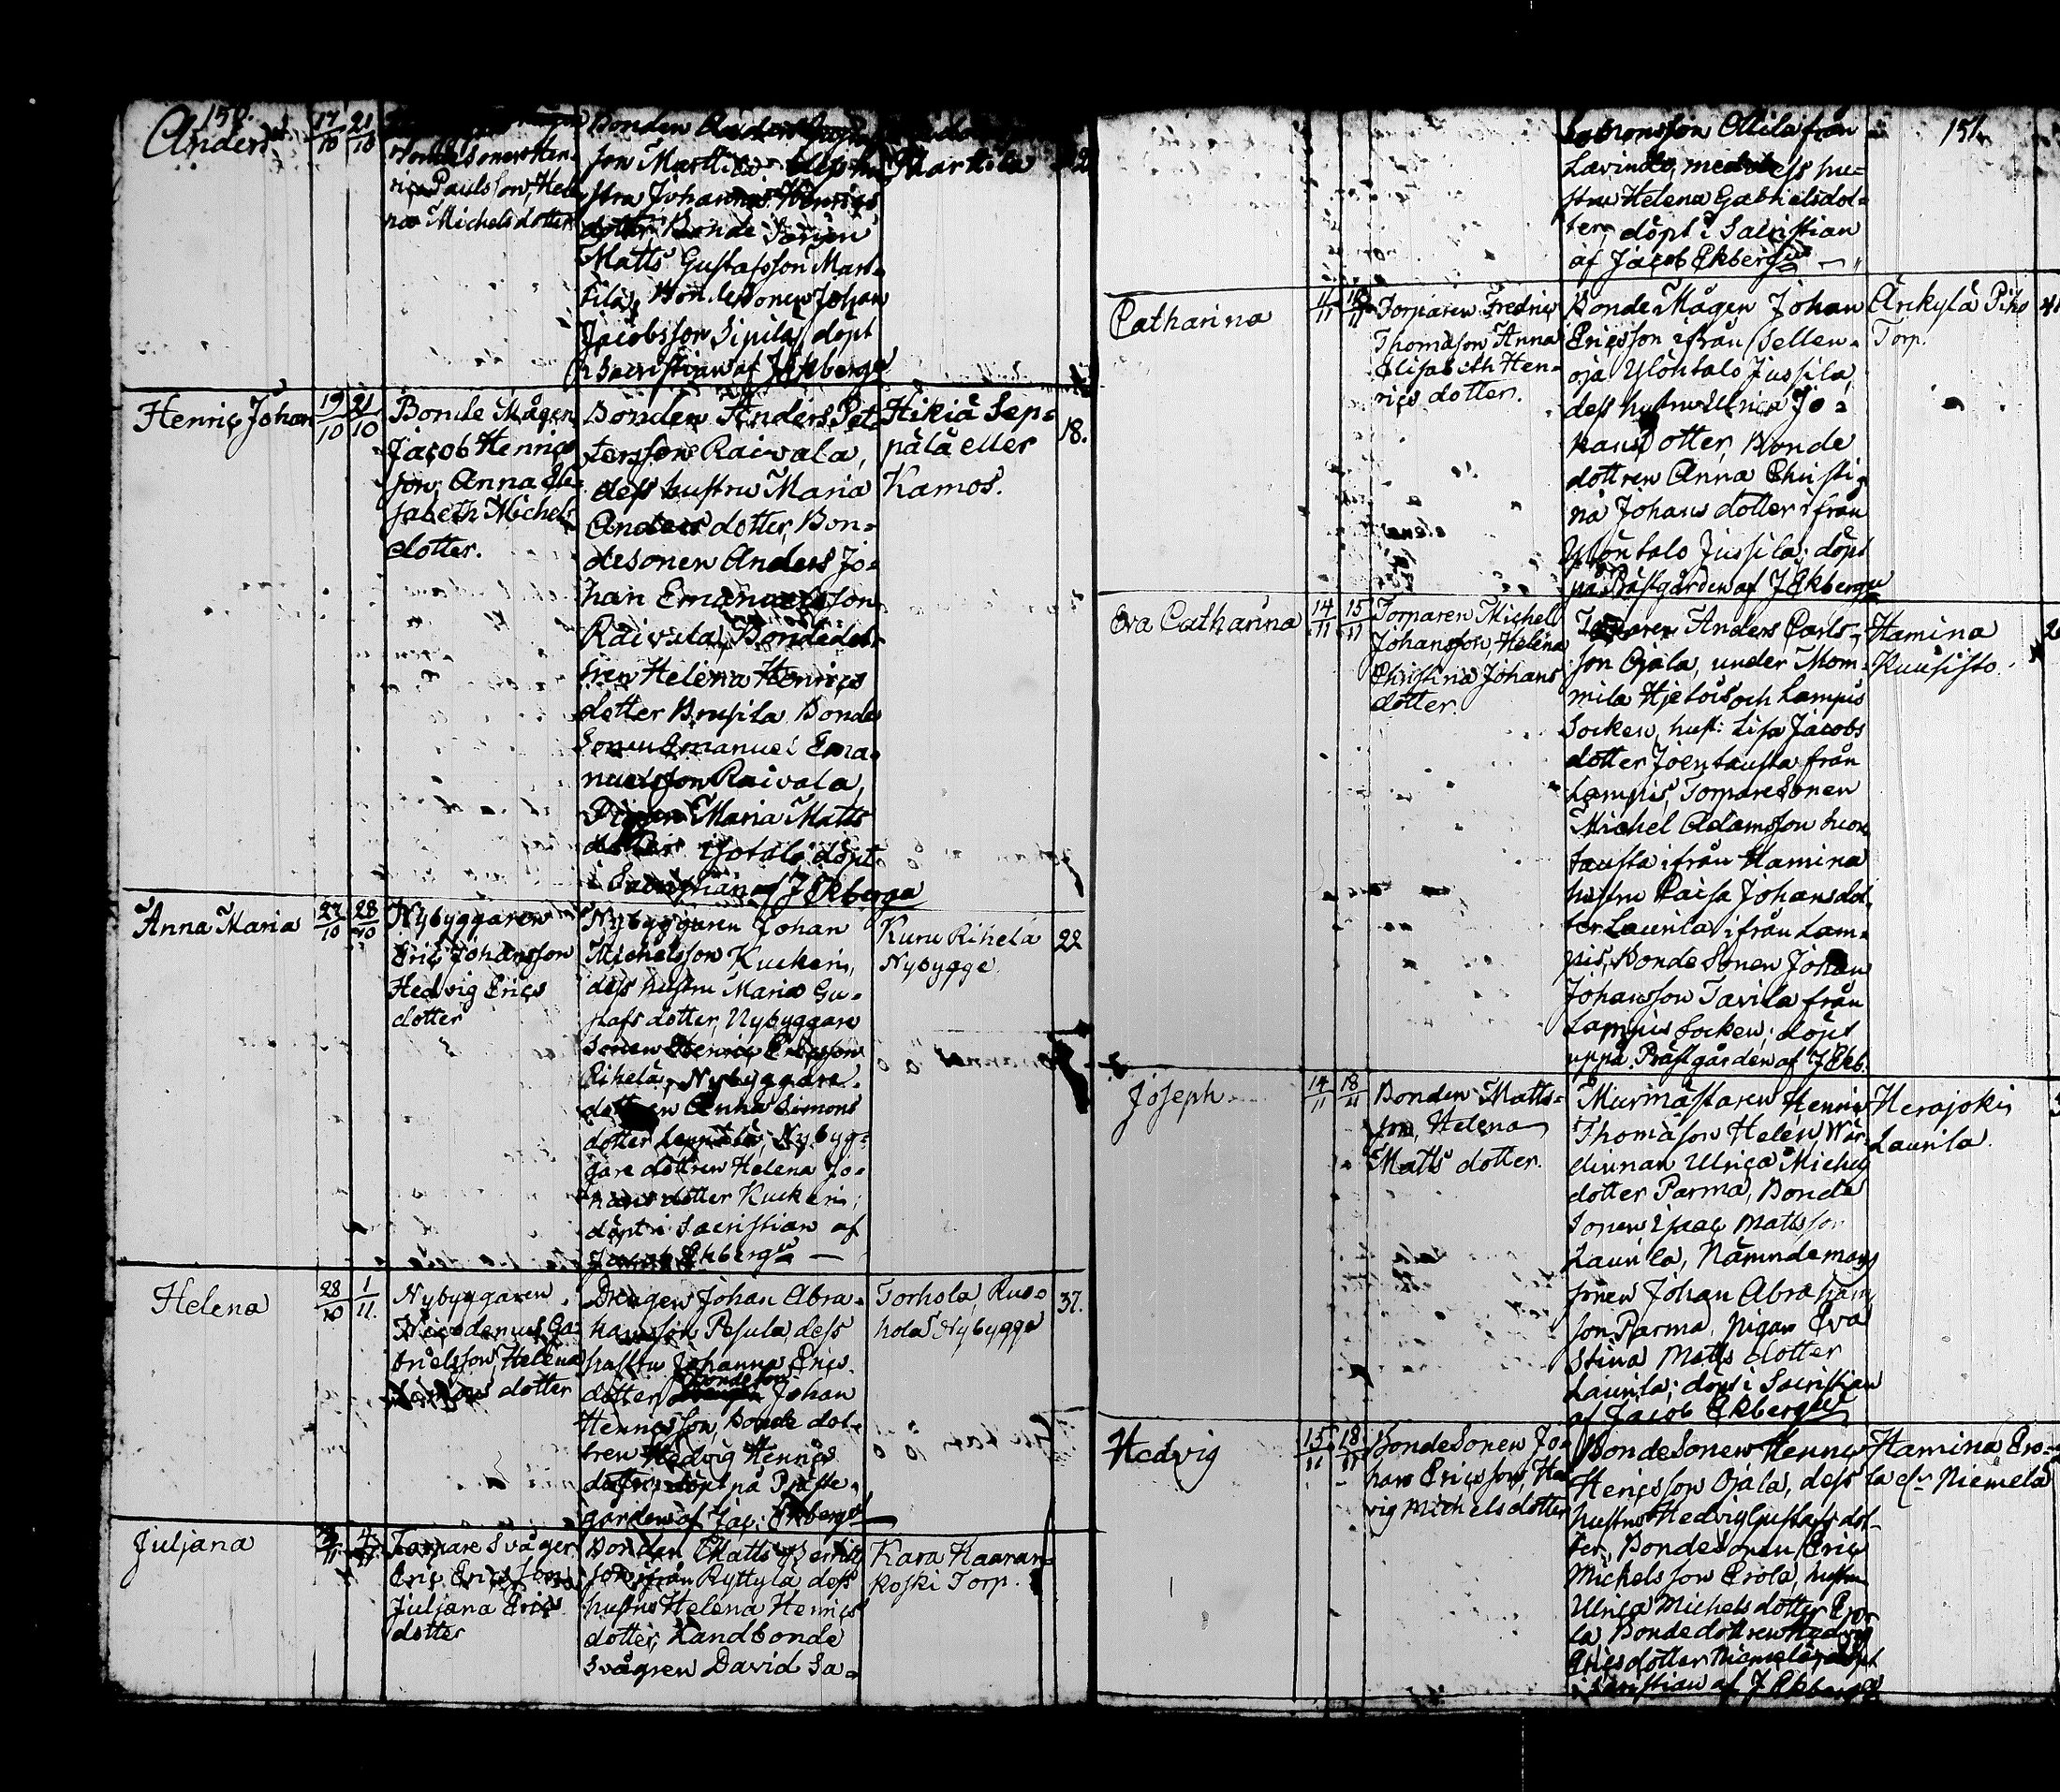 150.
Anders
17/10 21/10
Bondesonen Hen-
ric Paulsson, Hele
na Michelsdotter
Bonden
son Marttila
stra Johanna Henrics
dotter Bonde Sonen
Matts Gustafsson Mart-
tila, Bondesonen Johan
Jacobsson Sipila, döpt
i Sacristian af J Ekberg
Marttila
Henric Johan
19/10 21/10
Bonde Mågen
Jacob Henrics
son, Anna Eli-
sabeth Michels
dotter.
Bonden Anders Pet-
tersson Raivala,
dess hustru Maria
Anders dotter, Bon-
desonen Anders Jo-
han Emanuelsson
Raivala, Bondedot-
tren Helena Henrics
dotter Brusila Bonde
Sonen Emanuel Ema-
nuelsson Raivala,
Pigan Maria Matts
dotter Isotalo döpt
i Sacristian af J Ekberg
Hikiä Sep-
pälä eller
Kamos.
18.
Anna Maria
27/10 28/10
Nybyggaren
Eric Johansson
Hedvig Erics
dotter
Nybyggaren Johan
Michelsson Kuckeri,
dess hustru Maria Gu-
stafs dotter, Nybyggare
Sonen Henric Ericsson
Rihelä, Nybyggare
dottren Anna Simons
dotter Nybyg-
gare dottren Helena Jo-
hans dotter Kuckeri;
döpt i Sacristian af
Jacob Ekberg
Kuru Rihelä
Nybygge.
22
Helena
28/10 1/11.
Nybyggaren
Nicodemus Ga-
brielsson, Helena
dotter
Drengen Johan Abra-
hamsson Pesula, dess
hustru Johanna Erics
dotter, Bondeson Johan
Henricsson, Bonde dot-
tren Hedvig Henrics
dotter; döpt på Präste-
gården af Jac: Ekberg
Torhola, Rus-
hola Nybygge
37.
Juljana
3/11 4/11
Torpare Svåger
Eric Ericsson
Juljana Erics
dotter
Bonden Matts Henrics
son ifrån Ryttylä dess
hustru Helena Henrics
dotter, Landbonde
Svågren David Sa-
Kara Kaaran-
koski Torp.
151.
lomonsson Alila från
med dess hu-
stru Helena Gabrielsdot-
ter; döpt i Sacristian
af Jacob Ekberg
Catharina
11/11
Torparen Fredric
Thomasson Anna
Elisabeth Hen-
rics dotter.
BondeMågen Johan
Ericsson ifrån Sellen-
oja Ylöntalo Jussila,
dess hustru Ulrica Jo-
hans Dotter, Bonde
dottren Anna Christi-
na Johans dotter ifrån
Ylöntalo Jussila; döpt
på Prästgården af J Ekberg
Änkylä Piko
Torp.
Eva Catharina
14/11 15/11
Torparen Michel
Johansson, Helena
Christina Johans
dotter.
Torparen Anders Carls-
son Ojala, under Mom-
mila Hjelois och Lampis
Socken, hust: Lisa Jacobs
dotter Joentausta från
Lampis, TorpareSonen
Michel Adamsson Suon
tausta ifrån Hamina
hustru Caisa Johansdot
ter Laurila, ifrån Lam-
pis, Bonde Sonen Johan
Johansson Tavila från
Lampis Socken; döpt
uppå Prästgården af J Ekb.
Hamina
Kuusisto.
Joseph
14/11 18/11
Bonden Matts-
son, Helena
Matts dotter.
Murmästaren Henric
Thomasson Helen, Vär-
dinnan Ulrica Michels
dotter Parma, Bonde
Sonen Isaac Mattsson
Laurila, Nämndemans
sonen Johan Abrahams
son Parma, Pigan Eva
Stina Matts dotter
Laurila; döpt i Sacristian
af Jacob Ekberg
Herajoki
Laurila.
Hedvig
15/11 18/11
BondeSonen Jo-
han Ericsson, Hed
vig Michelsdotter
BondeSonen Henric
Henicsson Ojala, dess
hustru Hedvig Gustafs dot-
ter, BondeSonen Eric
Michelsson Erola, hustru
Ulrica Michels dotter Ero-
la, Bondedottren Hedvig
Ericsdotter Niemelä; döpt
i Sacristian af J Ekberg
Hamina Ero-
la elr Niemelä